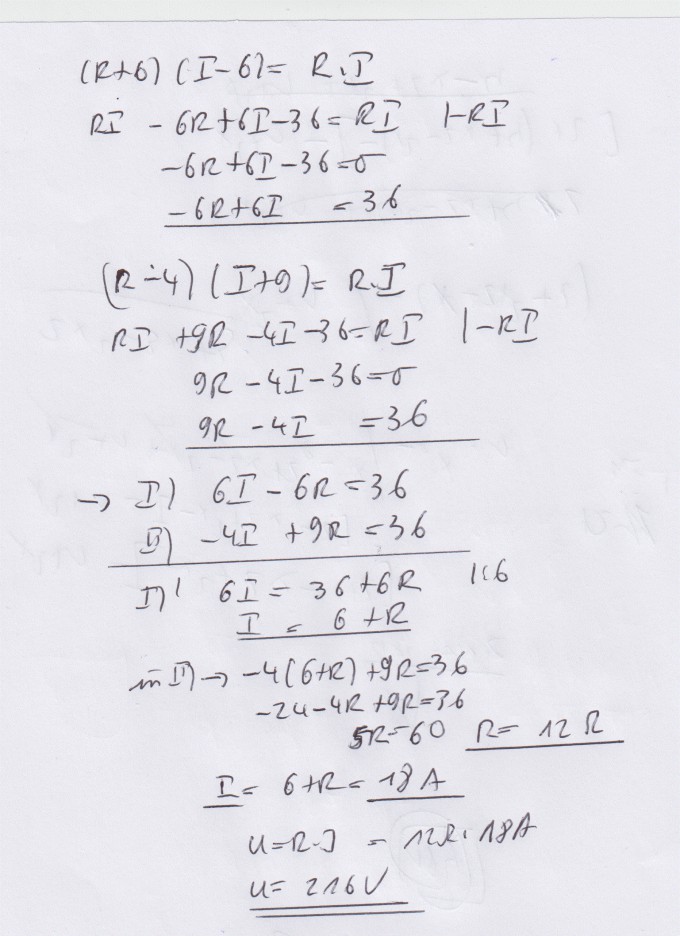 (R+6) (I-6) = R.I
RI - 6R+6I-36=RI |-RI
-6R+6I-36=0
-6R+6I =36
(R-4) (I+9)= R.I
RI +9R -4I-36=RI |-RI
9R-4I-36=0
9R -4I =36
→ I) 6I-6R=36
II) -4I +9R=36
I)' 6I = 36+6R |:6
I = 6+R
in II) → -4(6+R)+9R=36
-24-4R+9R=36
5R=60 R= 12Ω
I = 6+R= 18A
U=R.I = 12Ω. 18A
U= 216V